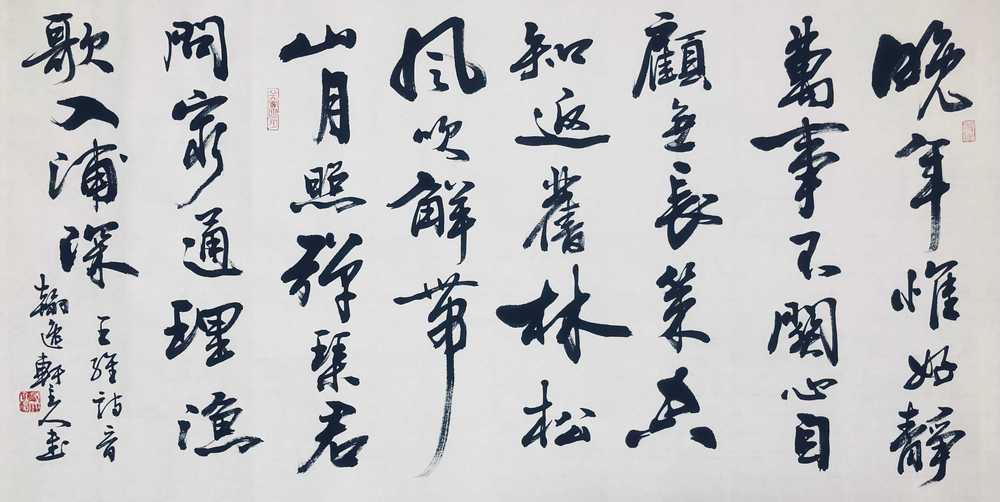 晚年惟好靜
萬事不關心自
顧無長策空
知返舊林松
風吹解帶
山月照彈琴君
問窮通理漁
歌入浦深
王維詩
翰逸軒主人書